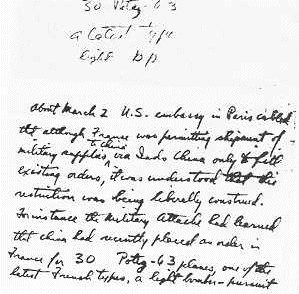 30 Potez-63
a latest type
light bp
About March 2 U.S. embassy in Paris cabled
tht although France was permitting shipment of
military supplies to china via Indo China only to fill
existing orders, it was understood tht this
restriction was being liberally construed.
For instance the military attache had learned
tht china had recently placed an order in
France for 30 Potez-63 planes, one of the
latest French types, a light bomber-pursuit